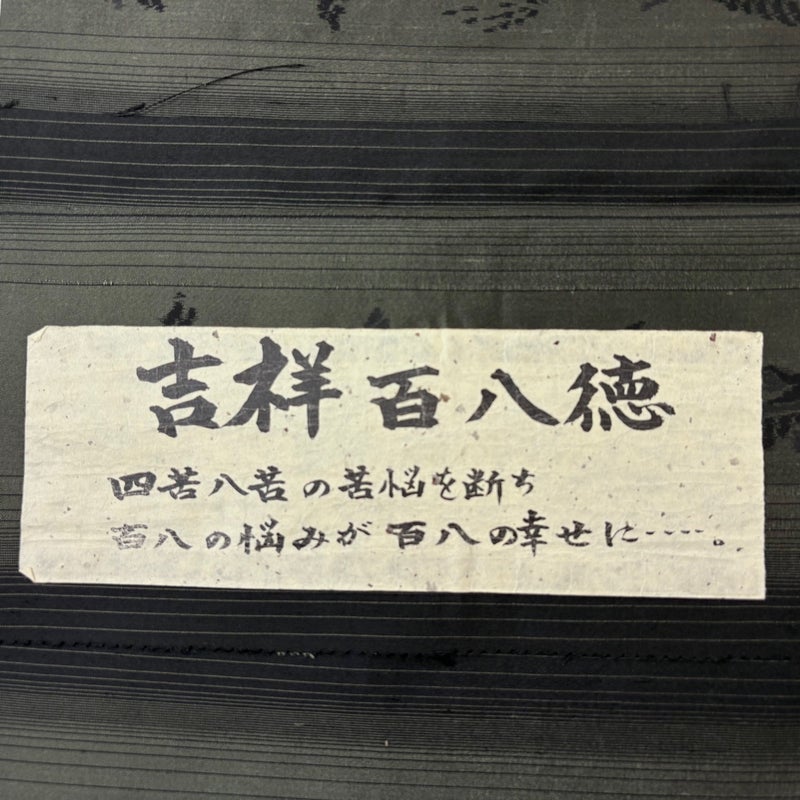 吉祥百八徳
四苦八苦の苦悩を断ち
百八の悩みが百八の幸せに‥‥。